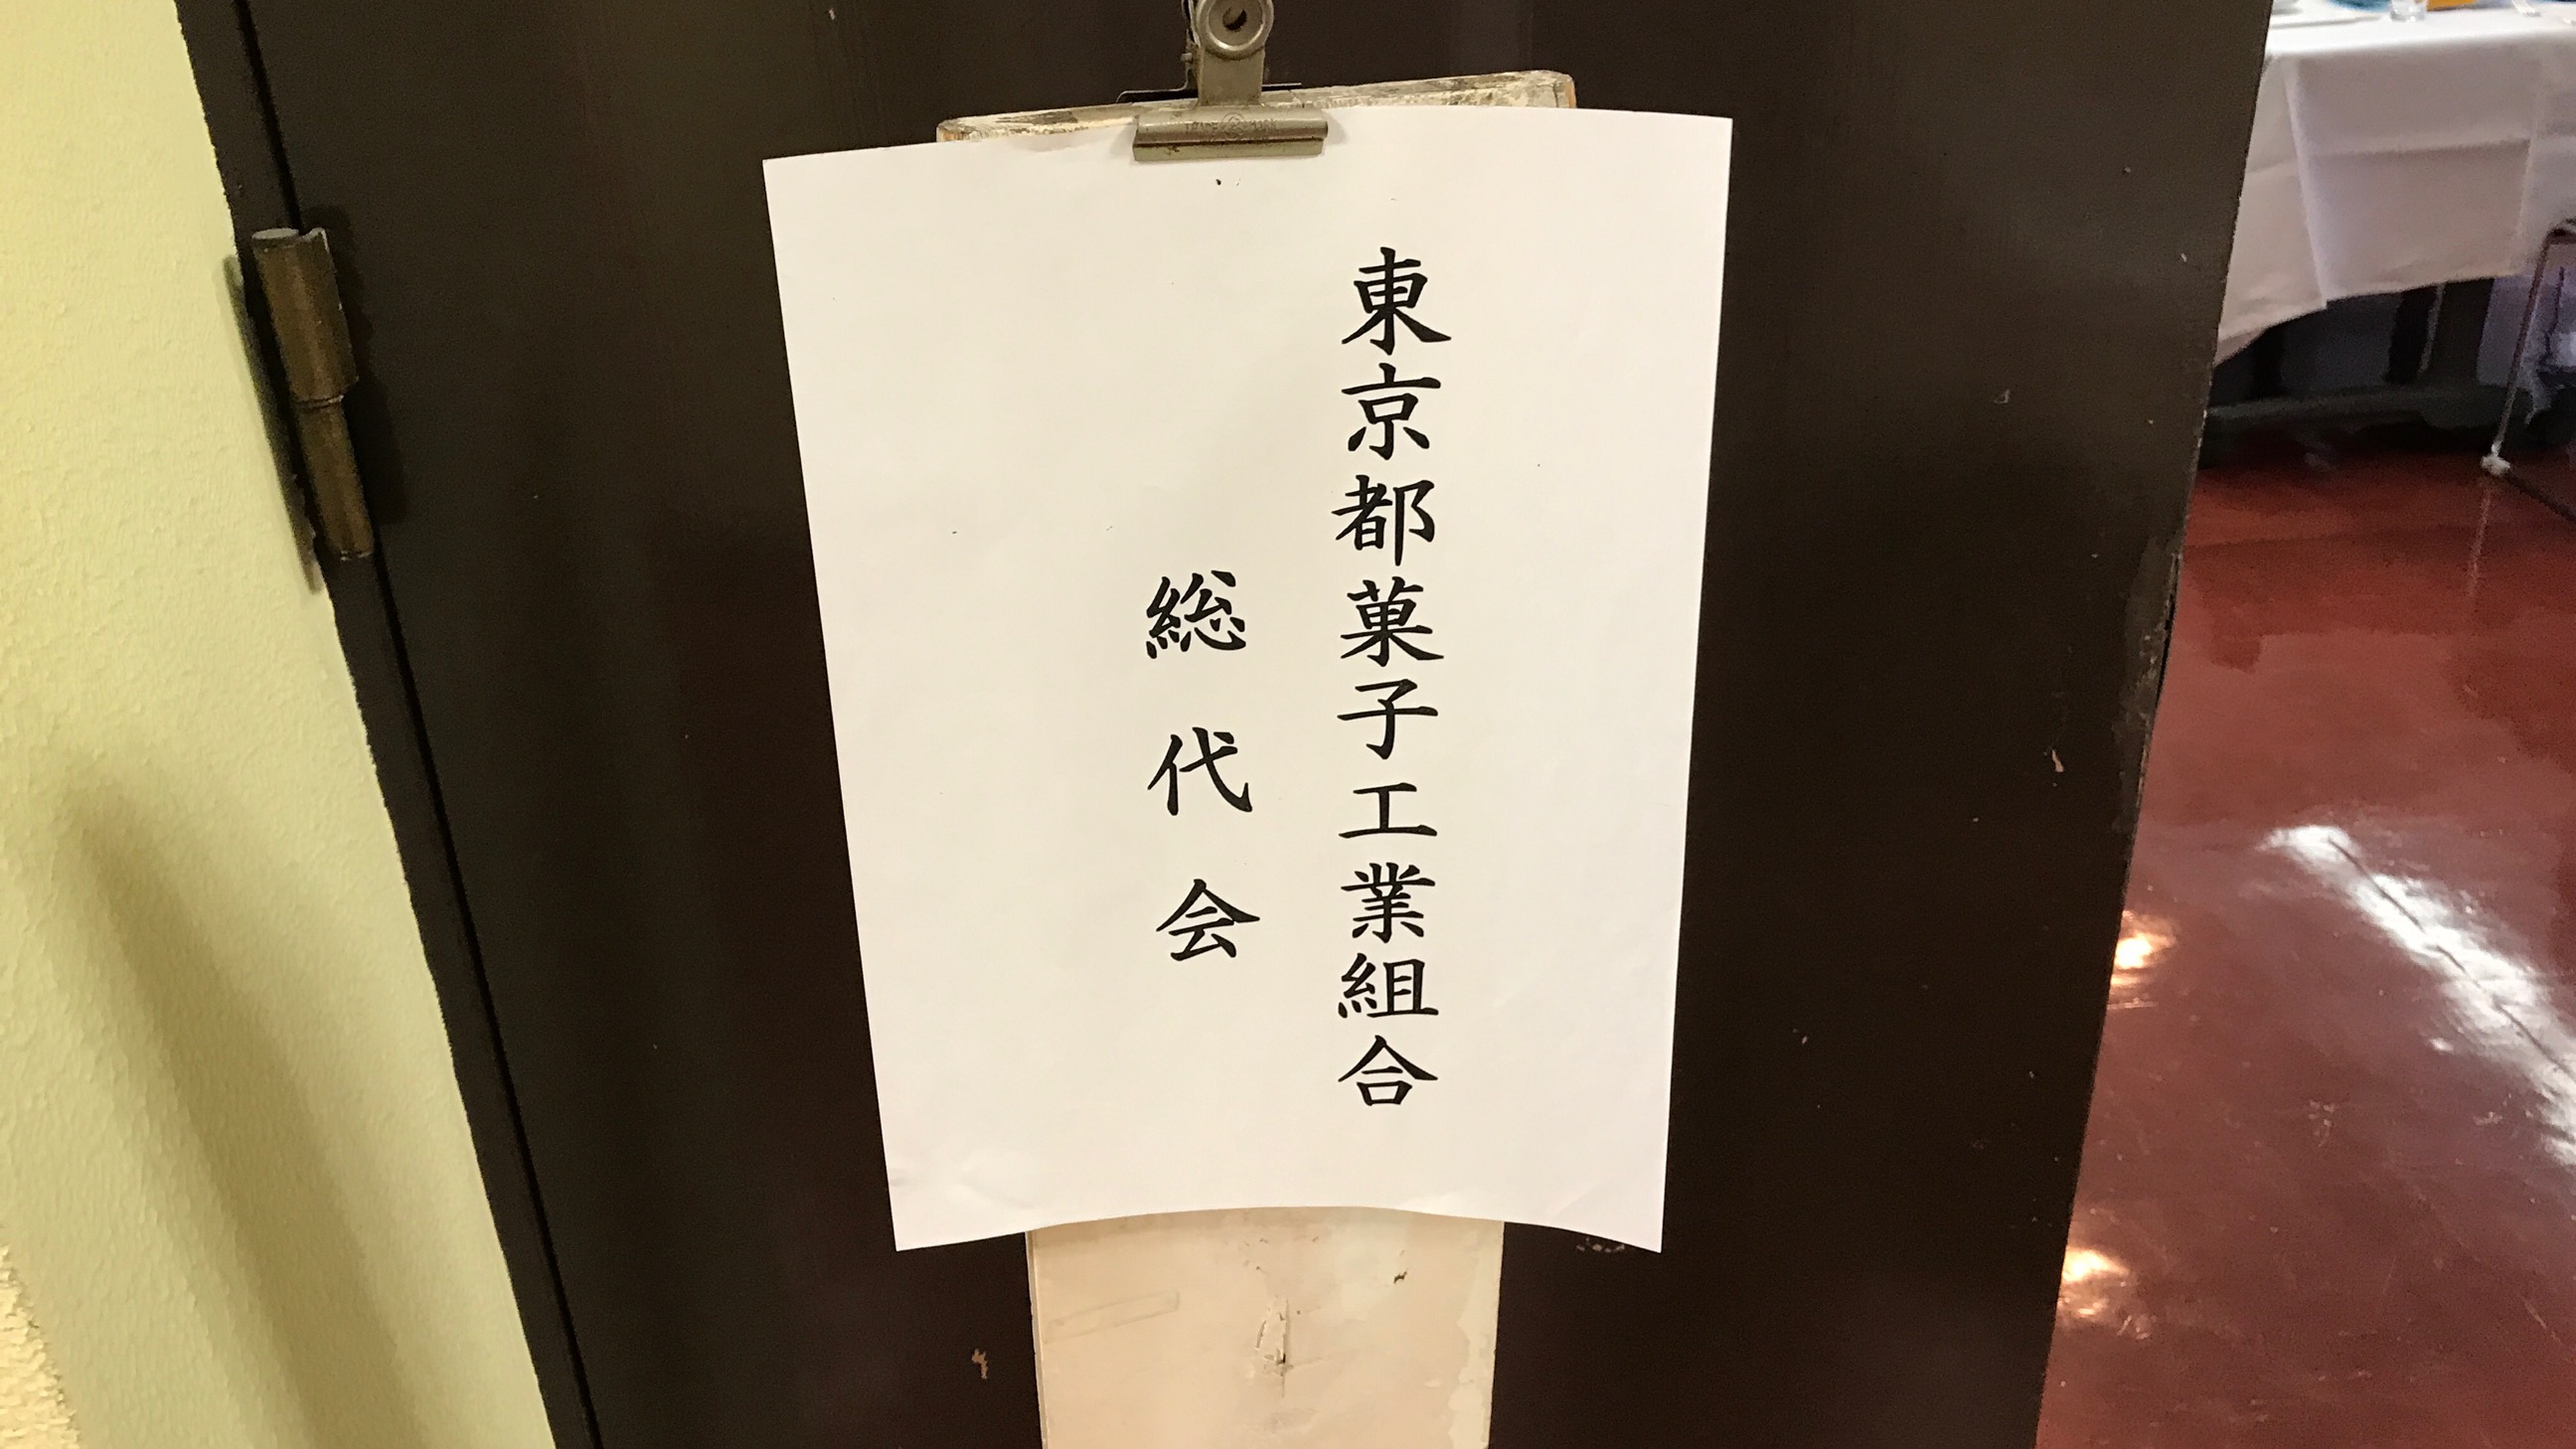 東京都菓子工業組合
総代会